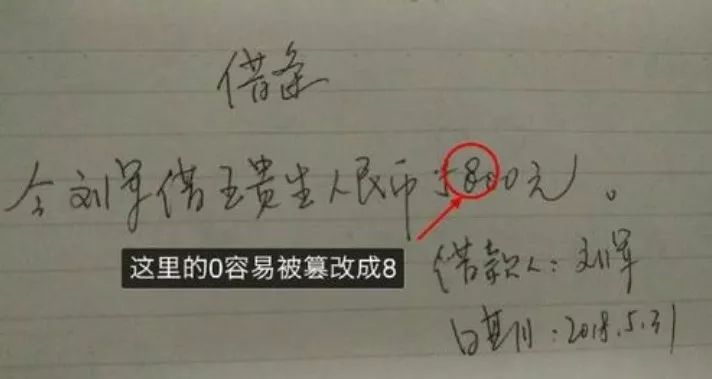 借条
今刘军借王贵生人民币5800元。
这里的0容易被篡改成8
借款人：刘军
日期：2018.5.31